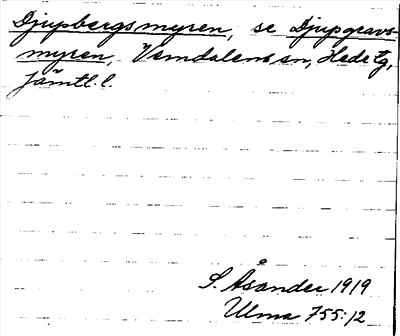 Djupbergsmyren, se Djupgravs-
myren, Vemdalens sn, Hede tg,
Jämtl. l.
S. Åsander 1919
Ulma 755:12